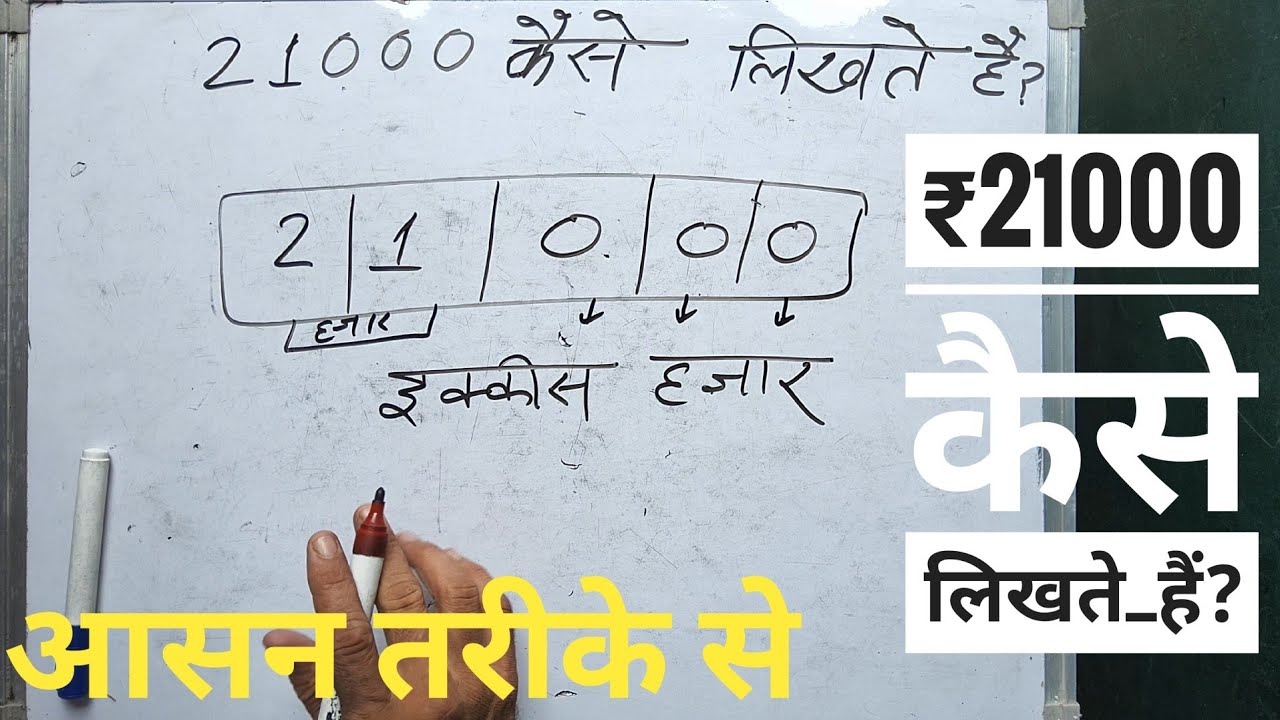 21000 कैसे लिखते हैं?
2 1 0 0 0
हजार
इक्कीस हजार
₹21000
कैसे
लिखते_हैं?
आसन तरीके से